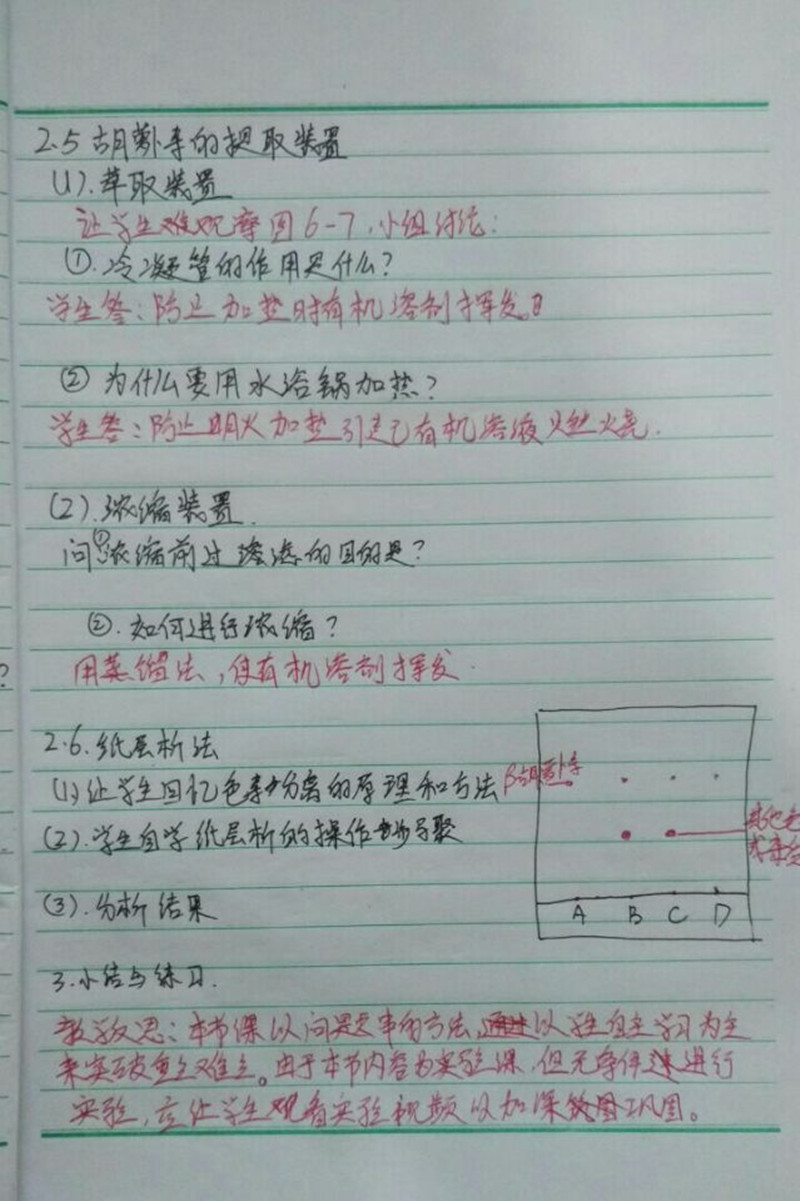 2.5 胡萝卜素的提取装置
(1).萃取装置
让学生观摩图6-7,小组讨论:
①.冷凝管的作用是什么?
学生答:防止加热时有机溶剂挥发
② 为什么要用水浴锅加热?
学生答:防止明火加热引起有机溶液燃烧.
(2).浓缩装置.
问①浓缩前过滤的目的是?
②.如何进行浓缩?
用蒸馏法,使有机溶剂挥发.
2.6.纸层析法
(1)让学生回忆色素分离的原理和方法
β胡萝卜素
(2).学生自学纸层析的操作步骤
其他色
(3).分析结果
A B C D
3.小结与练习.
教学反思:本节课以问题串的方法,通过以学生自主学习为主
来突破重点难点。由于本节内容为实验课,但无条件进行
实验,应让学生观看实验视频以加深巩固。